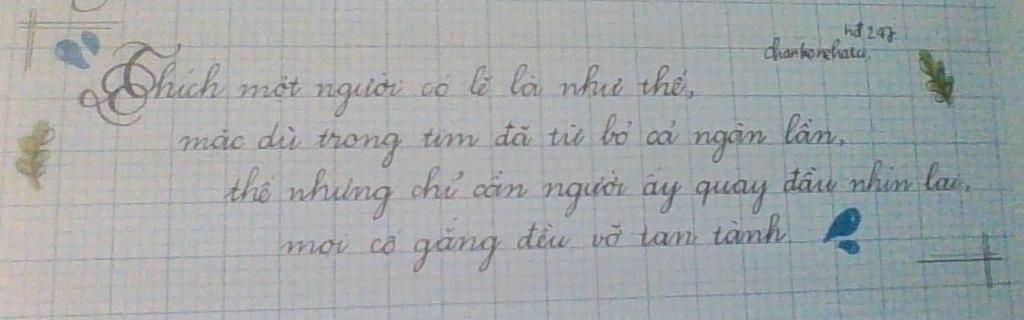 Thích một người có lẽ là như thế,
mặc dù trong tim đã từ bỏ cả ngàn lần,
thế nhưng chỉ cần người ấy quay đầu nhìn lại,
mọi cố gắng đều vỡ tan tành